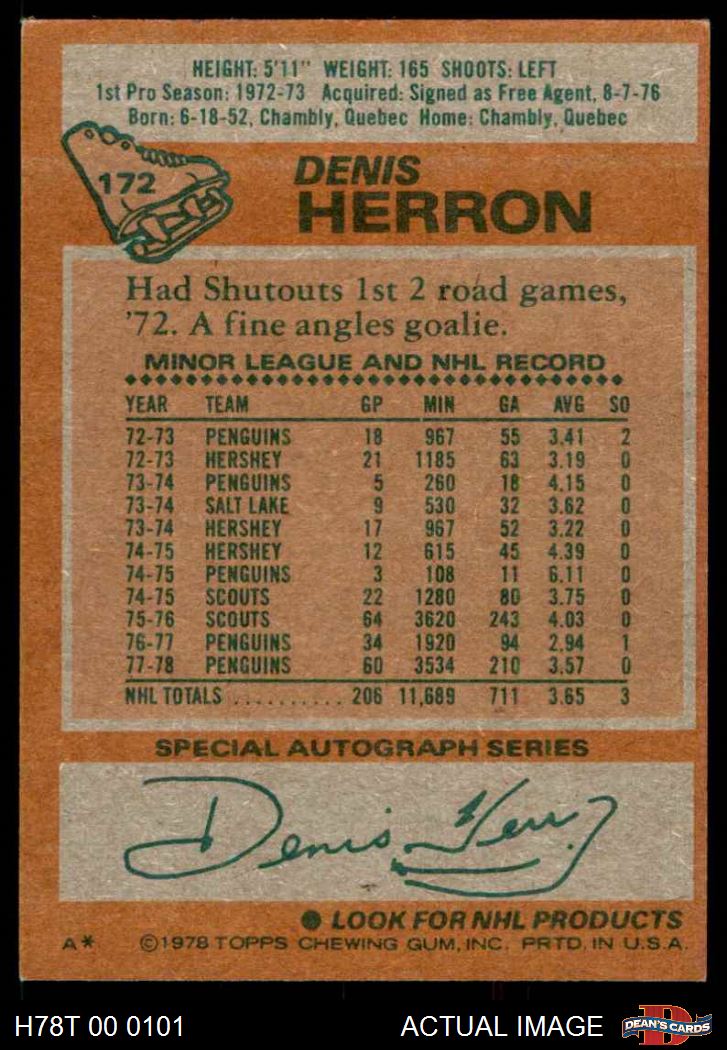 HEIGHT: 5'11" WEIGHT: 165 SHOOTS: LEFT
1st Pro Season: 1972-73 Acquired: Signed as Free Agent, 8-7-76
Born: 6-18-52, Chambly, Quebec Home: Chambly, Quebec
172
DENIS
HERRON
Had Shutouts 1st 2 road games,
'72. A fine angles goalie.
MINOR LEAGUE AND NHL RECORD
YEAR TEAM GP MIN GA AVG SO
72-73 PENGUINS 18 967 55 3.41 2
72-73 HERSHEY 21 1185 63 3.19 0
73-74 PENGUINS 5 260 18 4.15 0
73-74 SALT LAKE 9 530 32 3.62 0
73-74 HERSHEY 17 967 52 3.22 0
74-75 HERSHEY 12 615 45 4.39 0
74-75 PENGUINS 3 108 11 6.11 0
74-75 SCOUTS 22 1280 80 3.75 0
75-76 SCOUTS 64 3620 243 4.03 0
76-77 PENGUINS 34 1920 94 2.94 1
77-78 PENGUINS 60 3534 210 3.57 0
NHL TOTALS .......... 206 11,689 711 3.65 3
SPECIAL AUTOGRAPH SERIES
Denis Herron
● LOOK FOR NHL PRODUCTS
A* ©1978 TOPPS CHEWING GUM, INC. PRTD. IN U.S.A.
H78T 00 0101 ACTUAL IMAGE D DEAN'S CARDS